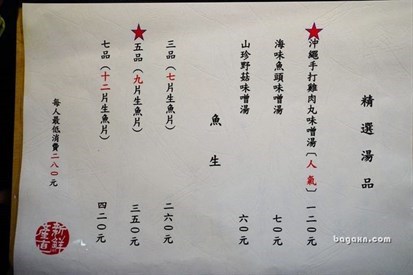 精選湯品
沖繩手打雞肉丸味噌湯〔人氣〕 一二〇元
海味魚頭味噌湯 七〇元
山珍野菇味噌湯 六〇元
魚生
三品（七片生魚片） 二六〇元
五品（九片生魚片） 三五〇元
七品（十二片生魚片） 四二〇元
每人最低消費二八〇元
新鮮
產直
bagaxn.com